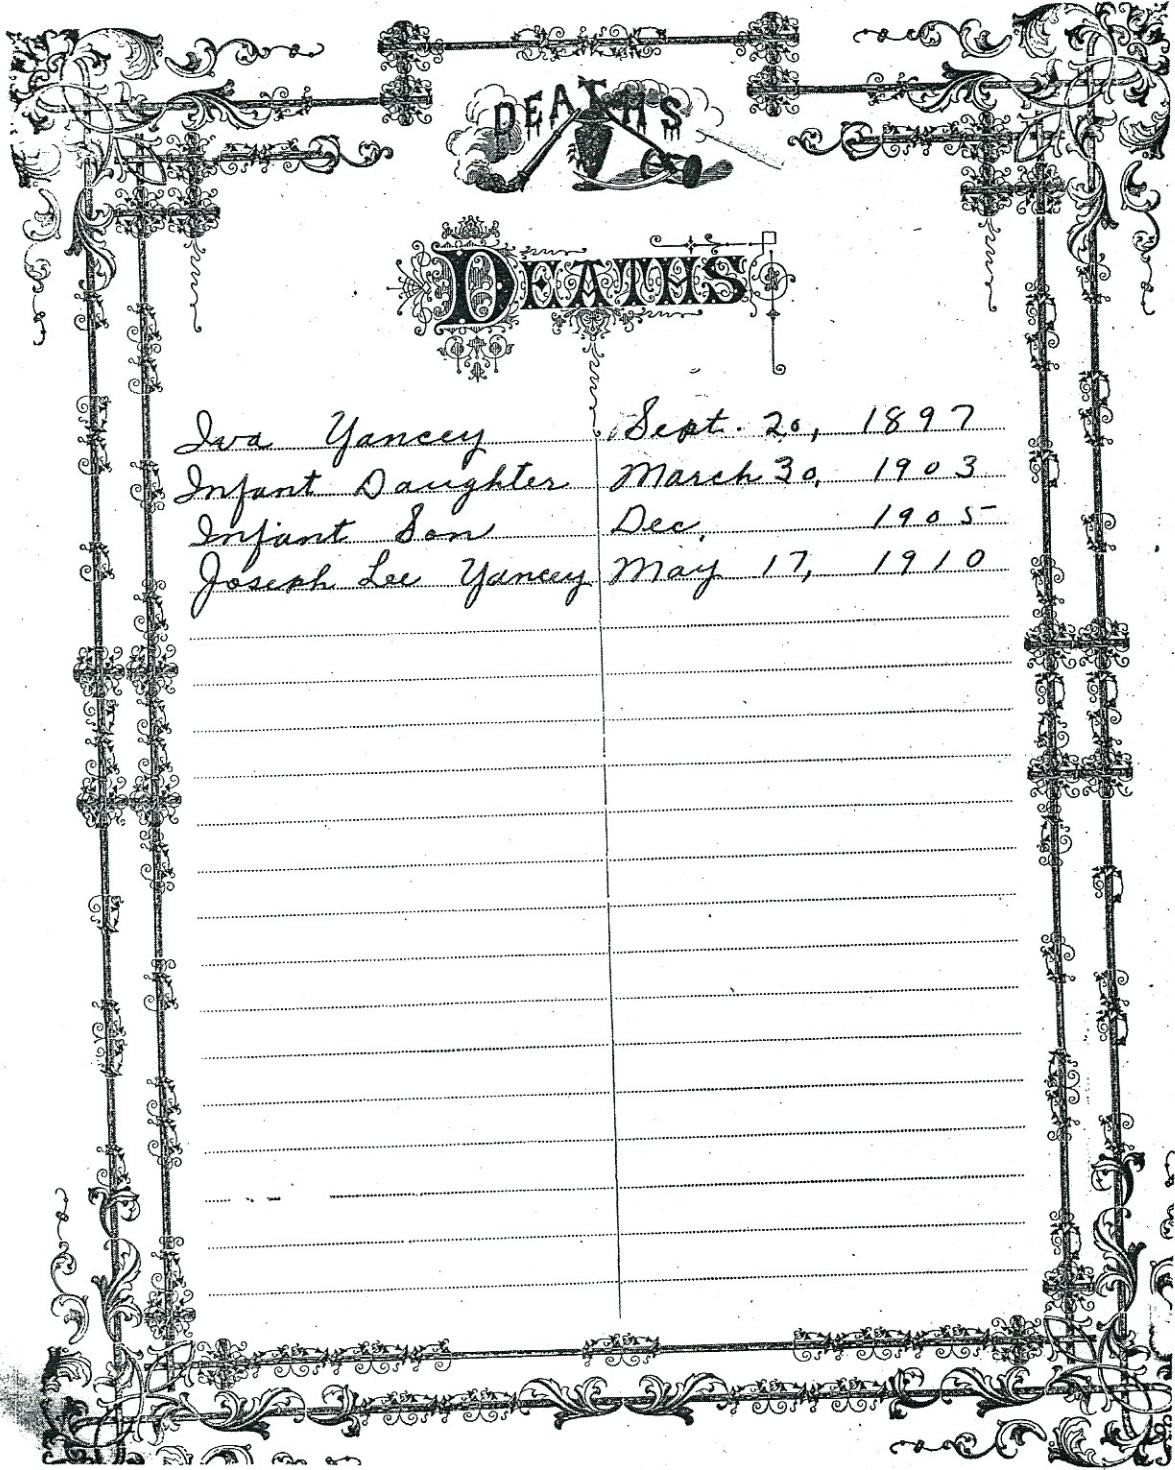 DEATHS
DEATHS
Iva Yancey Sept. 20, 1897
Infant Daughter March 30, 1903
Infant Son Dec. 1905
Joseph Lee Yancey May 17, 1910